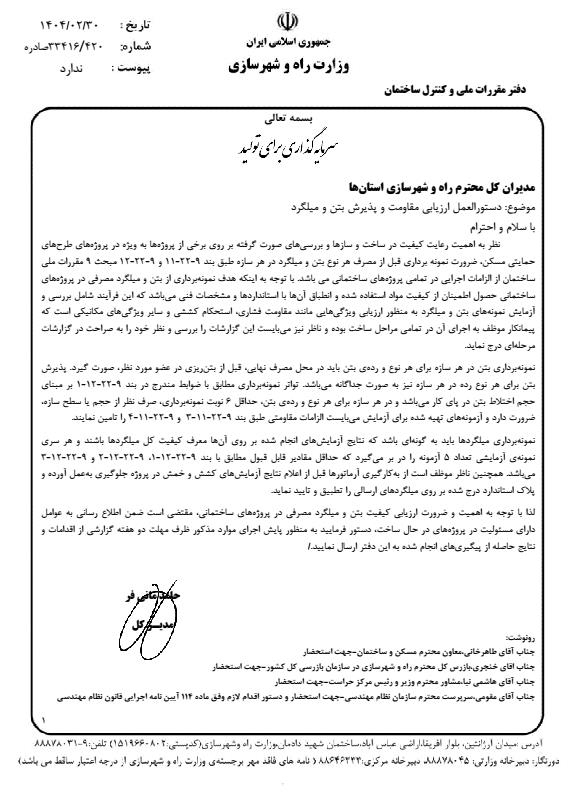 جمهوری اسلامی ایران
وزارت راه و شهرسازی
تاریخ : ۱۴۰۴/۰۲/۳۰
شماره: ۳۳۴۱۶/۴۲۰صادره
پیوست : ندارد
دفتر مقررات ملی و کنترل ساختمان
بسمه تعالی
سرمایه‌گذاری برای تولید
مدیران کل محترم راه و شهرسازی استان‌ها
موضوع: دستورالعمل ارزیابی مقاومت و پذیرش بتن و میلگرد
با سلام و احترام
نظر به اهمیت رعایت کیفیت در ساخت و سازها و بررسی‌های صورت گرفته بر روی برخی از پروژه‌ها به ویژه در پروژه‌های طرح‌های
حمایتی مسکن، ضرورت نمونه برداری قبل از مصرف هر نوع بتن و میلگرد در هر سازه طبق بند ۹-۲۲-۱۱ و ۹-۲۲-۱۲ مبحث ۹ مقررات ملی
ساختمان از الزامات اجرایی در تمامی پروژه‌های ساختمانی می باشد. با توجه به اینکه هدف نمونه‌برداری از بتن و میلگرد مصرفی در پروژه‌های
ساختمانی حصول اطمینان از کیفیت مواد استفاده شده و انطباق آن‌ها با استانداردها و مشخصات فنی می‌باشد که این فرآیند شامل بررسی و
آزمایش نمونه‌های بتن و میلگرد به منظور ارزیابی ویژگی‌هایی مانند مقاومت فشاری، استحکام کششی و سایر ویژگی‌های مکانیکی است که
پیمانکار موظف به اجرای آن در تمامی مراحل ساخت بوده و ناظر نیز می‌بایست این گزارشات را بررسی و نظر خود را به صراحت در گزارشات
مرحله‌ای درج نماید.
نمونه‌برداری بتن در هر سازه برای هر نوع و رده‌ی بتن باید در محل مصرف نهایی، قبل از بتن‌ریزی در عضو مورد نظر، صورت گیرد. پذیرش
بتن برای هر نوع رده در هر سازه نیز به صورت جداگانه می‌باشد. تواتر نمونه‌برداری مطابق با ضوابط مندرج در بند ۹-۲۲-۱۲-۱ بر مبنای
حجم اختلاط بتن در پای کار می‌باشد و در هر سازه برای هر نوع و رده‌ی بتن، حداقل ۶ نوبت نمونه‌برداری، صرف نظر از حجم یا سطح سازه،
ضرورت دارد و آزمونه‌های تهیه شده برای آزمایش می‌بایست الزامات مقاومتی طبق بند ۹-۲۲-۱۱-۳ و ۹-۲۲-۱۱-۴ را تامین نمایند.
نمونه‌برداری میلگردها باید به گونه‌ای باشد که نتایج آزمایش‌های انجام شده بر روی آن‌ها معرف کیفیت کل میلگردها باشند و هر سری
نمونه‌ی آزمایشی تعداد ۵ آزمونه را در بر می‌گیرد که حداقل مقادیر قابل قبول مطابق با بند ۹-۲۲-۱۲-۱، ۹-۲۲-۱۲-۲ و ۹-۲۲-۱۲-۳
می‌باشد. همچنین ناظر موظف است از به‌کارگیری آرماتورها قبل از اعلام نتایج آزمایش‌های کشش و خمش در پروژه جلوگیری به‌عمل آورده و
پلاک استاندارد درج شده بر روی میلگردهای ارسالی را تطبیق و تایید نماید.
لذا با توجه به اهمیت و ضرورت ارزیابی کیفیت بتن و میلگرد مصرفی در پروژه‌های ساختمانی، مقتضی است ضمن اطلاع رسانی به عوامل
دارای مسئولیت در پروژه‌های در حال ساخت، دستور فرمایید به منظور پایش اجرای موارد مذکور ظرف مهلت دو هفته گزارشی از اقدامات و
نتایج حاصله از پیگیری‌های انجام شده به این دفتر ارسال نمایید./
حامد مانی فر
مدیر کل
رونوشت:
جناب آقای طاهرخانی،معاون محترم مسکن و ساختمان-جهت استحضار
جناب آقای خنجری،بازرس کل محترم راه و شهرسازی در سازمان بازرسی کل کشور-جهت استحضار
جناب آقای هاشمی نیا،مشاور محترم وزیر و رئیس مرکز حراست-جهت استحضار
جناب آقای مقومی،سرپرست محترم سازمان نظام مهندسی-جهت استحضار و دستور اقدام لازم وفق ماده ۱۱۴ آیین نامه اجرایی قانون نظام مهندسی
۱
آدرس :میدان آرژانتین، بلوار آفریقا،اراضی عباس آباد،ساختمان شهید دادمان،وزارت راه وشهرسازی(کدپستی:۱۵۱۹۶۶۰۸۰۲) تلفن:۹-۸۸۸۷۸۰۳۱
دورنگار: دبیرخانه وزارتی: ۸۸۸۷۸۰۴۵، دبیرخانه مرکزی:۸۸۶۴۶۲۳۳ ( نامه های فاقد مهر برجسته‌ی وزارت راه و شهرسازی از درجه اعتبار ساقط می باشد)